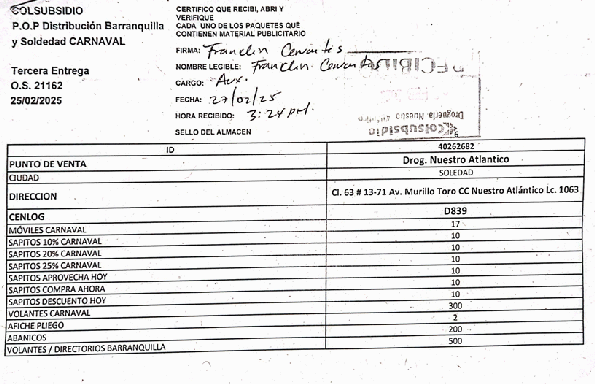 COLSUBSIDIO
P.O.P Distribución Barranquilla
y Soldedad CARNAVAL
Tercera Entrega
O.S. 21162
25/02/2025
CERTIFICO QUE RECIBI, ABRI Y
VERIFIQUE
CADA UNO DE LOS PAQUETES QUE
CONTIENEN MATERIAL PUBLICITARIO
FIRMA: Franclin Cervantes
NOMBRE LEGIBLE: Franclin Cervantes
CARGO: Aux.
FECHA: 27/02/25
HORA RECIBIDO: 3:24 PM
SELLO DEL ALMACEN
RECIBIDO
Drogueria Nuestro Atlantico
Colsubsidio
ID 40262682
PUNTO DE VENTA Drog. Nuestro Atlantico
CIUDAD SOLEDAD
DIRECCION Cl. 63 # 13-71 Av. Murillo Toro CC Nuestro Atlántico Lc. 1063
CENLOG D839
MÓVILES CARNAVAL 17
SAPITOS 10% CARNAVAL 10
SAPITOS 20% CARNAVAL 10
SAPITOS 25% CARNAVAL 10
SAPITOS APROVECHA HOY 10
SAPITOS COMPRA AHORA 10
SAPITOS DESCUENTO HOY 10
VOLANTES CARNAVAL 300
AFICHE PLIEGO 2
ABANICOS 200
VOLANTES / DIRECTORIOS BARRANQUILLA 500